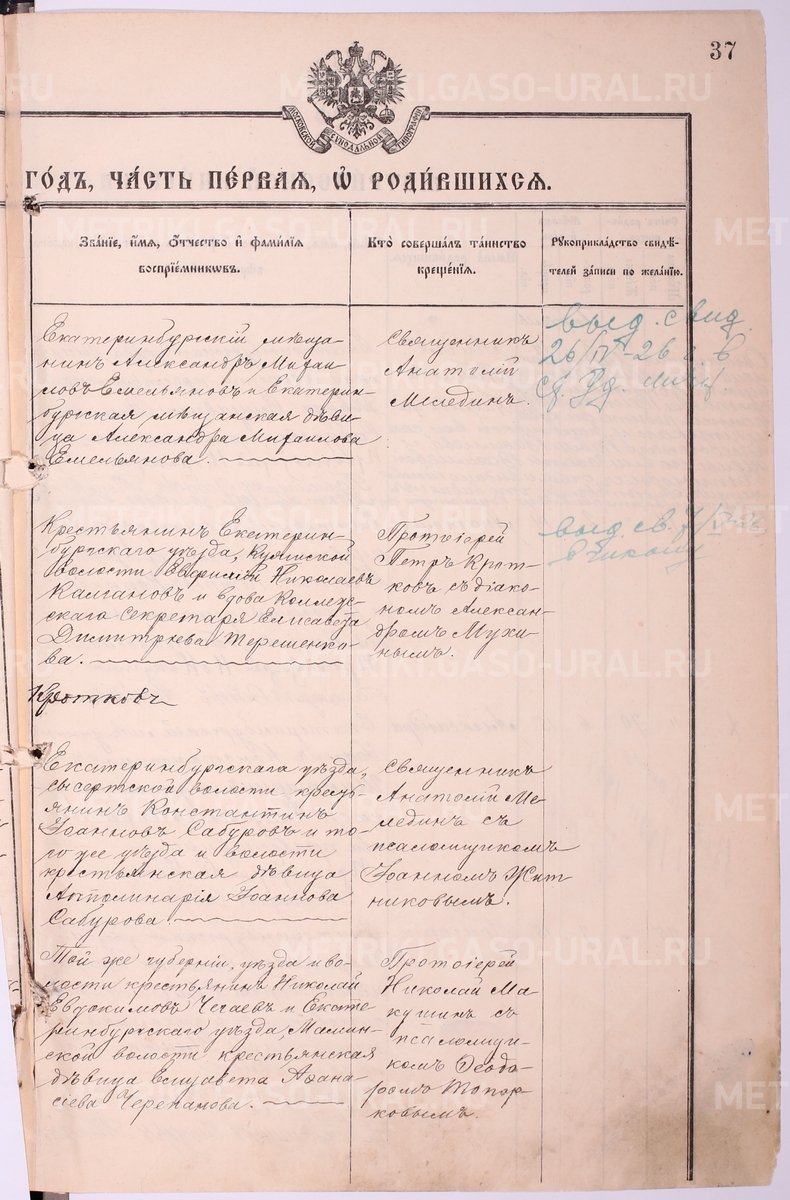 37
МОСКОВСКОЙ СѴНОДАЛЬНОЙ ТИПОГРАФІИ
ГО́ДЪ, ЧА́СТЬ ПЕ́РВАЯ, Ѡ҆ РОДИ́ВШИХСЯ.
ЗВА́НІЕ, И҆́МЯ, Ѻ҆́ТЧЕСТВО И҆ ФАМИ́ЛІЯ
ВОСПРІЕ́МНИКѠВЪ.
КТО̀ СОВЕРША́ЛЪ ТА́ИНСТВО
КРЕЩЕ́НІЯ.
РУКОПРИКЛА́ДСТВО СВИДѢ́-
ТЕЛЕЙ ЗА́ПИСИ ПО ЖЕЛА́НІЮ.
Екатеринбургскій мѣща-
нинъ Александръ Михаи-
ловъ Емельяновъ и Екатерин-
бургская мѣщанская дѣви-
ца Александра Михаилова
Емельянова.
Священникъ
Анатолій
Мелединъ.
выд. свид.
26/IV-26 г.
Крестьянинъ Екатерин-
бургскаго уѣзда,
волости Николаевъ
Калгановъ и вдова Коллеж-
скаго Секретаря Елисавета
Димитріева Терешенко-
ва.
Протоіерей
Петръ Крот-
ковъ съ діако-
номъ Алексан-
дромъ Мухи-
нымъ.
выд. св. 7/
Кротковъ
Екатеринбургскаго уѣзда,
Сысертской волости кресть-
янинъ Константинъ
Іоанновъ Сабуровъ и то-
го же уѣзда и волости
крестьянская дѣвица
Апполинарія Іоаннова
Сабурова.
Священникъ
Анатолій Ме-
лединъ съ
псаломщикомъ
Іоанномъ Жит
никовымъ.
Той же губерніи, уѣзда и во-
лости крестьянинъ Николай
Евдокимовъ Чегаевъ и Екате
ринбургскаго уѣзда, Мамин-
ской волости крестьянская
дѣвица Елизавета Аѳана-
сіева Черепанова.
Протоіерей
Николай Ма-
кушинъ съ
псаломщи-
комъ Ѳеодо-
ромъ Топор-
ковымъ.
METRIKI.GASO-URAL.RU